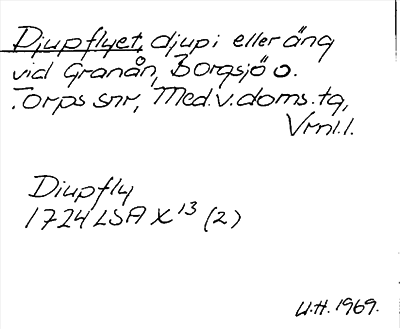 Djupflyet, djup i eller äng
vid Granån, Borgsjö o.
Torps snr, Med.v.doms.tg,
Vrnl.l.
Djupfly
1724 LSA X 13 (2)
U.H. 1969.